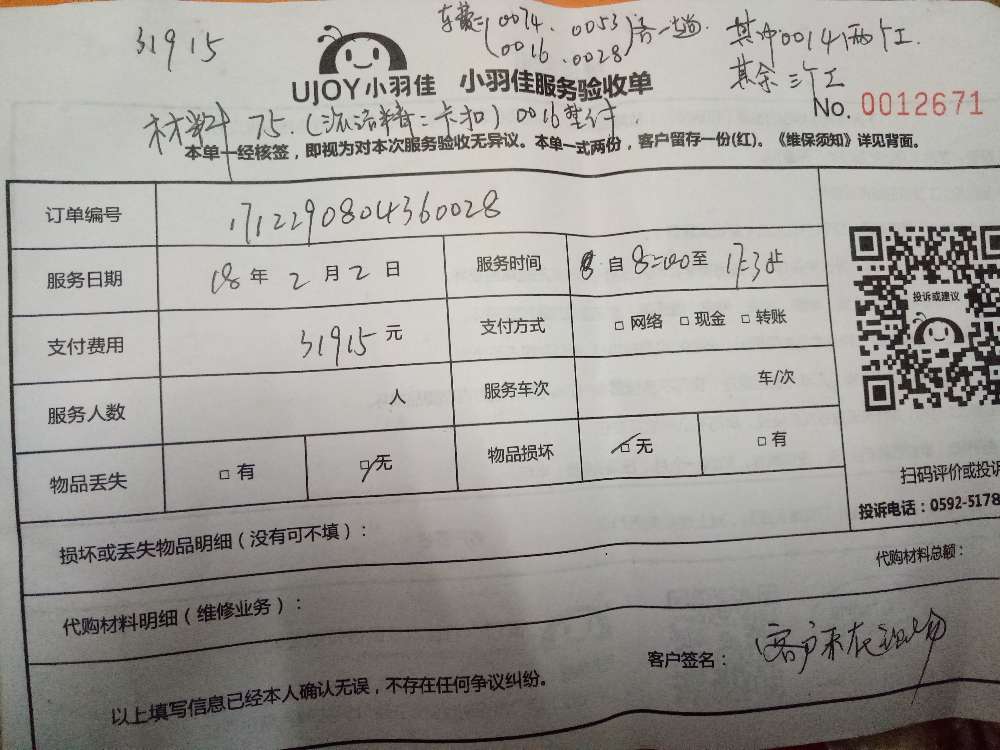 31915
0074. 0053
0016. 0028
其中0014两个工.
其余三个工
UJOY小羽佳 小羽佳服务验收单
No. 0012671
材料 75. 卡扣) 0016垫付.
本单一经核签，即视为对本次服务验收无异议。本单一式两份，客户留存一份(红)。《维保须知》详见背面。
订单编号 1712290804360028
服务日期 18 年 2 月 2 日 服务时间 自 8:00 至 17:30 止
支付费用 31915 元 支付方式 □ 网络 □ 现金 □ 转账
服务人数 人 服务车次 车/次
物品丢失 □ 有 □ 无 物品损坏 □ 无 □ 有
投诉或建议
扫码评价或投诉
投诉电话：0592-5178
损坏或丢失物品明细（没有可不填）：
代购材料明细（维修业务）： 代购材料总额：
客户签名： 客户不在现场
以上填写信息已经本人确认无误，不存在任何争议纠纷。